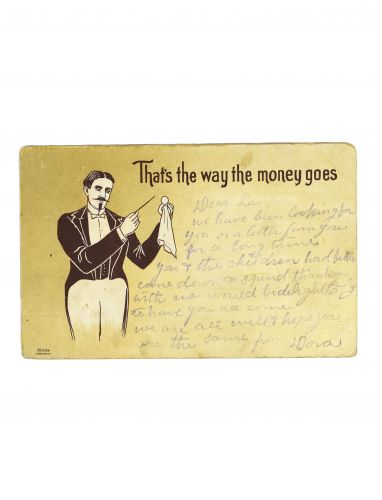 That's the way the money goes
Dear Laura
we have been looking for
you or a letter from you
for a long time
you & the children had better
come down & spend thanksg
with us would be delighted
to have you all come
we are all well & hope you
are the same from Dora
COPYRIGHT